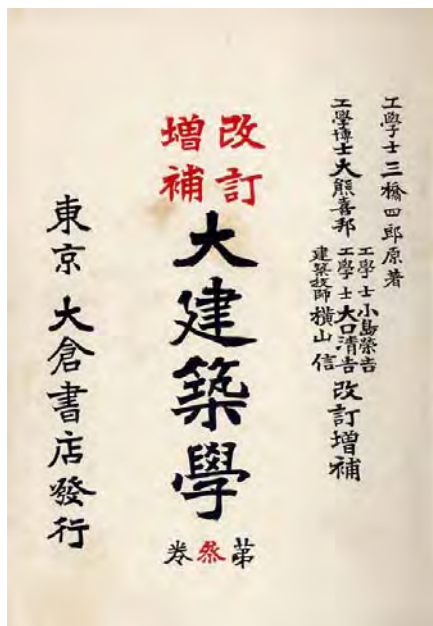 工學士三橋四郎原著
工學博士大熊喜邦
工學士小島榮吉
工學士大口清吉
建築技師横山信
改訂増補
改訂
増補
大建築學
第叅卷
東京大倉書店發行